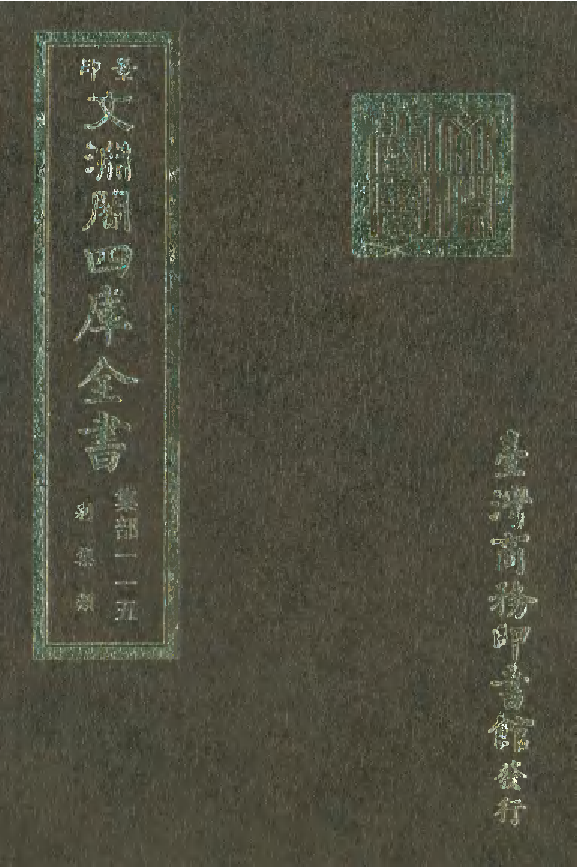 景印
文淵閣四庫全書
集部一一五
別集類
臺灣商務印書館發行